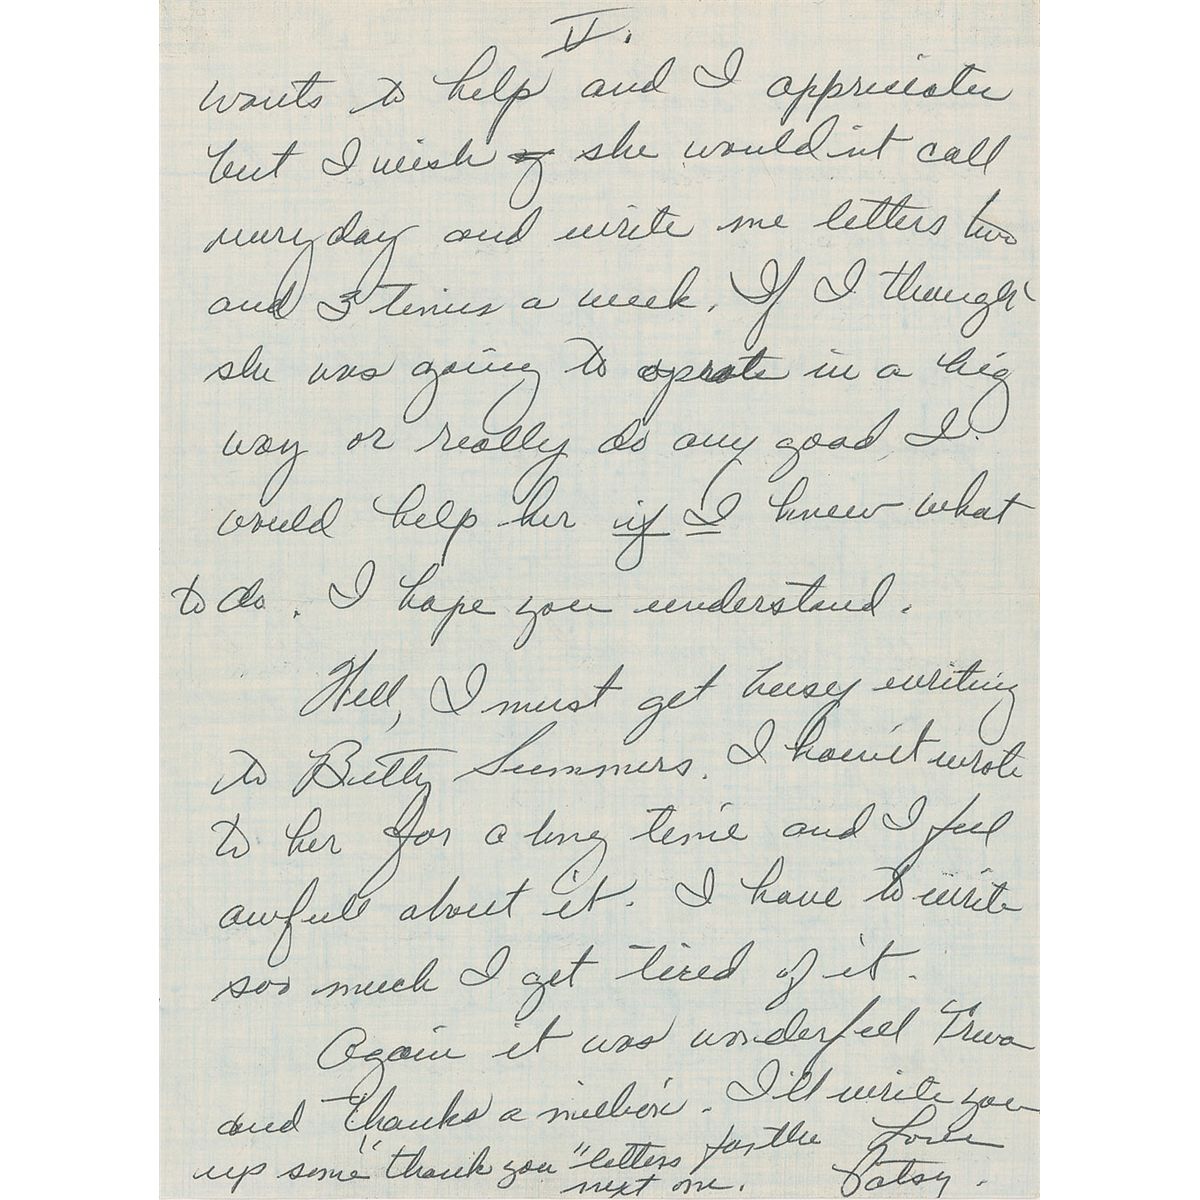 V.
wants to help and I appriciate
but I wish she would'nt call
everyday and write me letters two
and 3 times a week. If I though
she was going to oprate in a big
way or really do any good I
would help her if I knew what
to do. I hope you understand.
Well, I must get busy writing
to Betty Summers. I havn't wrote
to her for a long time and I feel
awfull about it. I have to write
soo much I get tired of it.
Again it was wonderfull Treva
and Thanks a million. I'll write you
up some "thank you" letters for the
next one.
Love
Patsy.